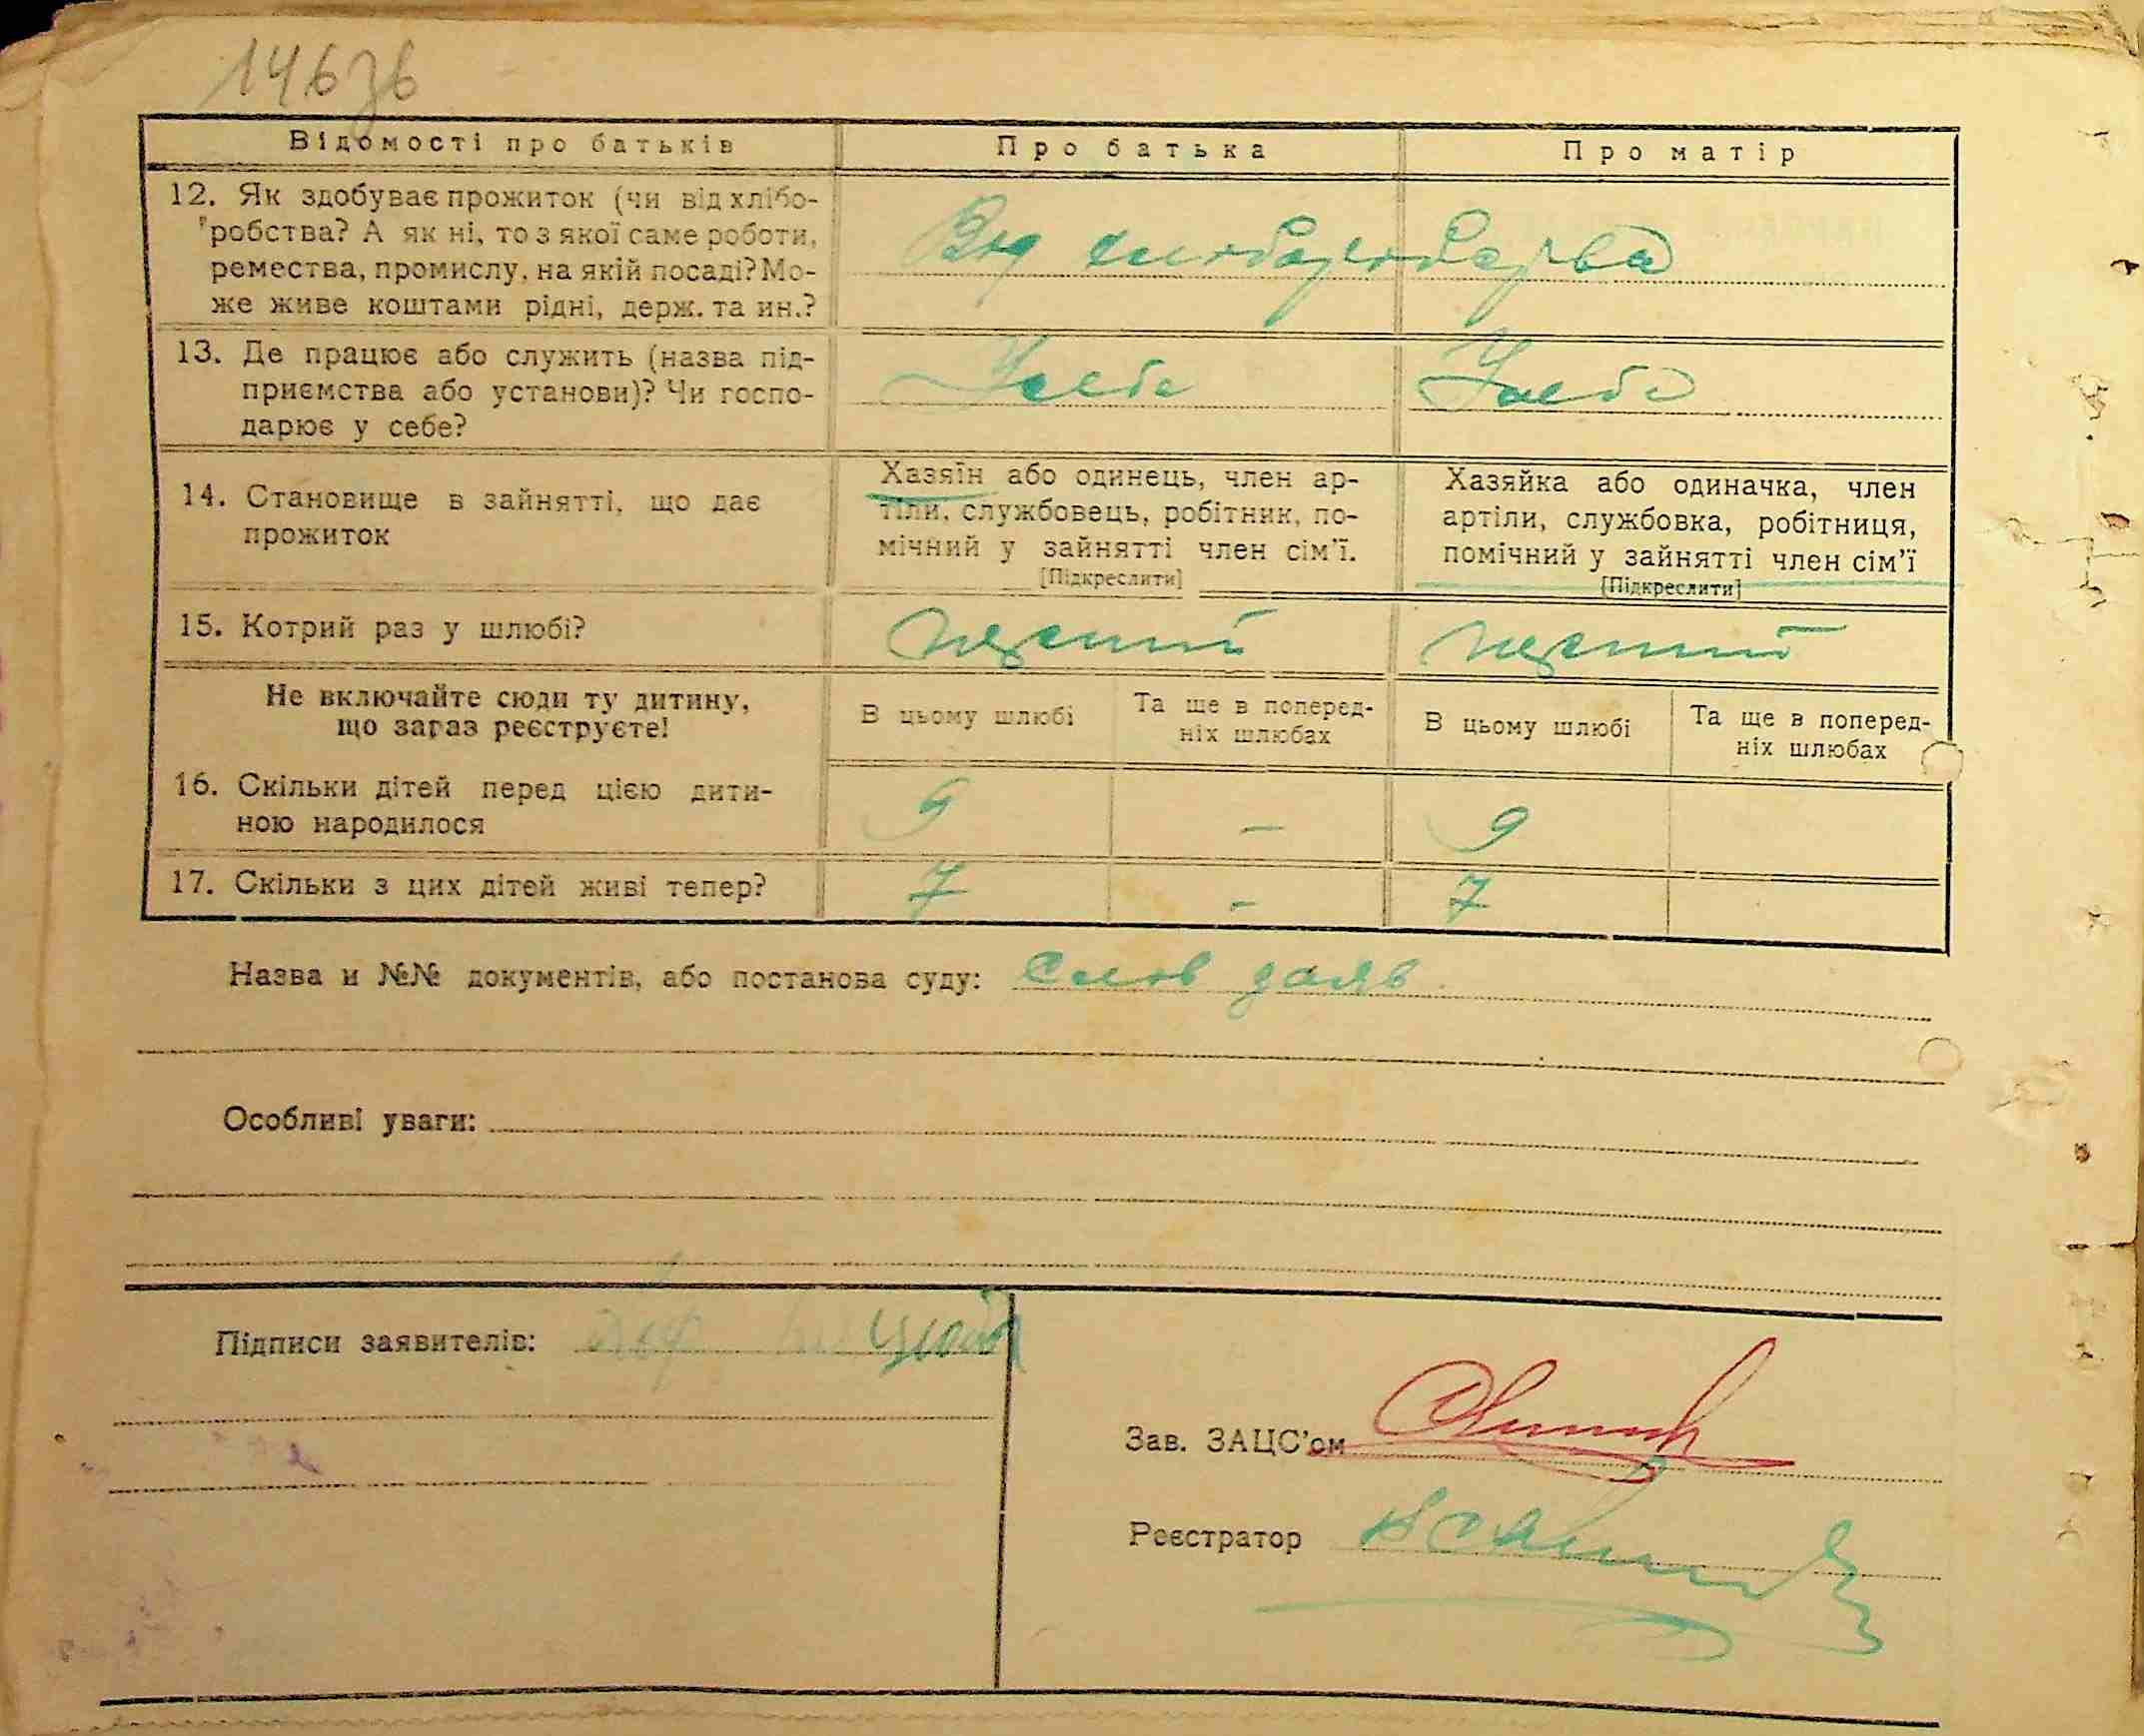 146зв
Відомості про батьків Про батька Про матір
12. Як здобуває прожиток (чи від хлібо-
робства? А як ні, то з якої саме роботи,
ремества, промислу, на якій посаді? Мо-
же живе коштами рідні, держ. та ин.?
Від
13. Де працює або служить (назва під-
приємства або установи)? Чи госпо-
дарює у себе?
У себе У себе
14. Становище в зайнятті, що дає
прожиток
Хазяїн або одинець, член ар-
тіли, службовець, робітник, по-
мічний у зайнятті член сім'ї.
[Підкреслити]
Хазяйка або одиначка, член
артіли, службовка, робітниця,
помічний у зайнятті член сім'ї
[Підкреслити]
15. Котрий раз у шлюбі? перший перший
Не включайте сюди ту дитину,
що зараз реєструєте!
В цьому шлюбі
Та ще в поперед-
ніх шлюбах
В цьому шлюбі
Та ще в поперед-
ніх шлюбах
16. Скільки дітей перед цією дити-
ною народилося
9 – 9
17. Скільки з цих дітей живі тепер? 7 – 7
Назва и №№ документів, або постанова суду: слов заяв
Особливі уваги:
Підписи заявителів:
Зав. ЗАЦС'ом
Реєстратор